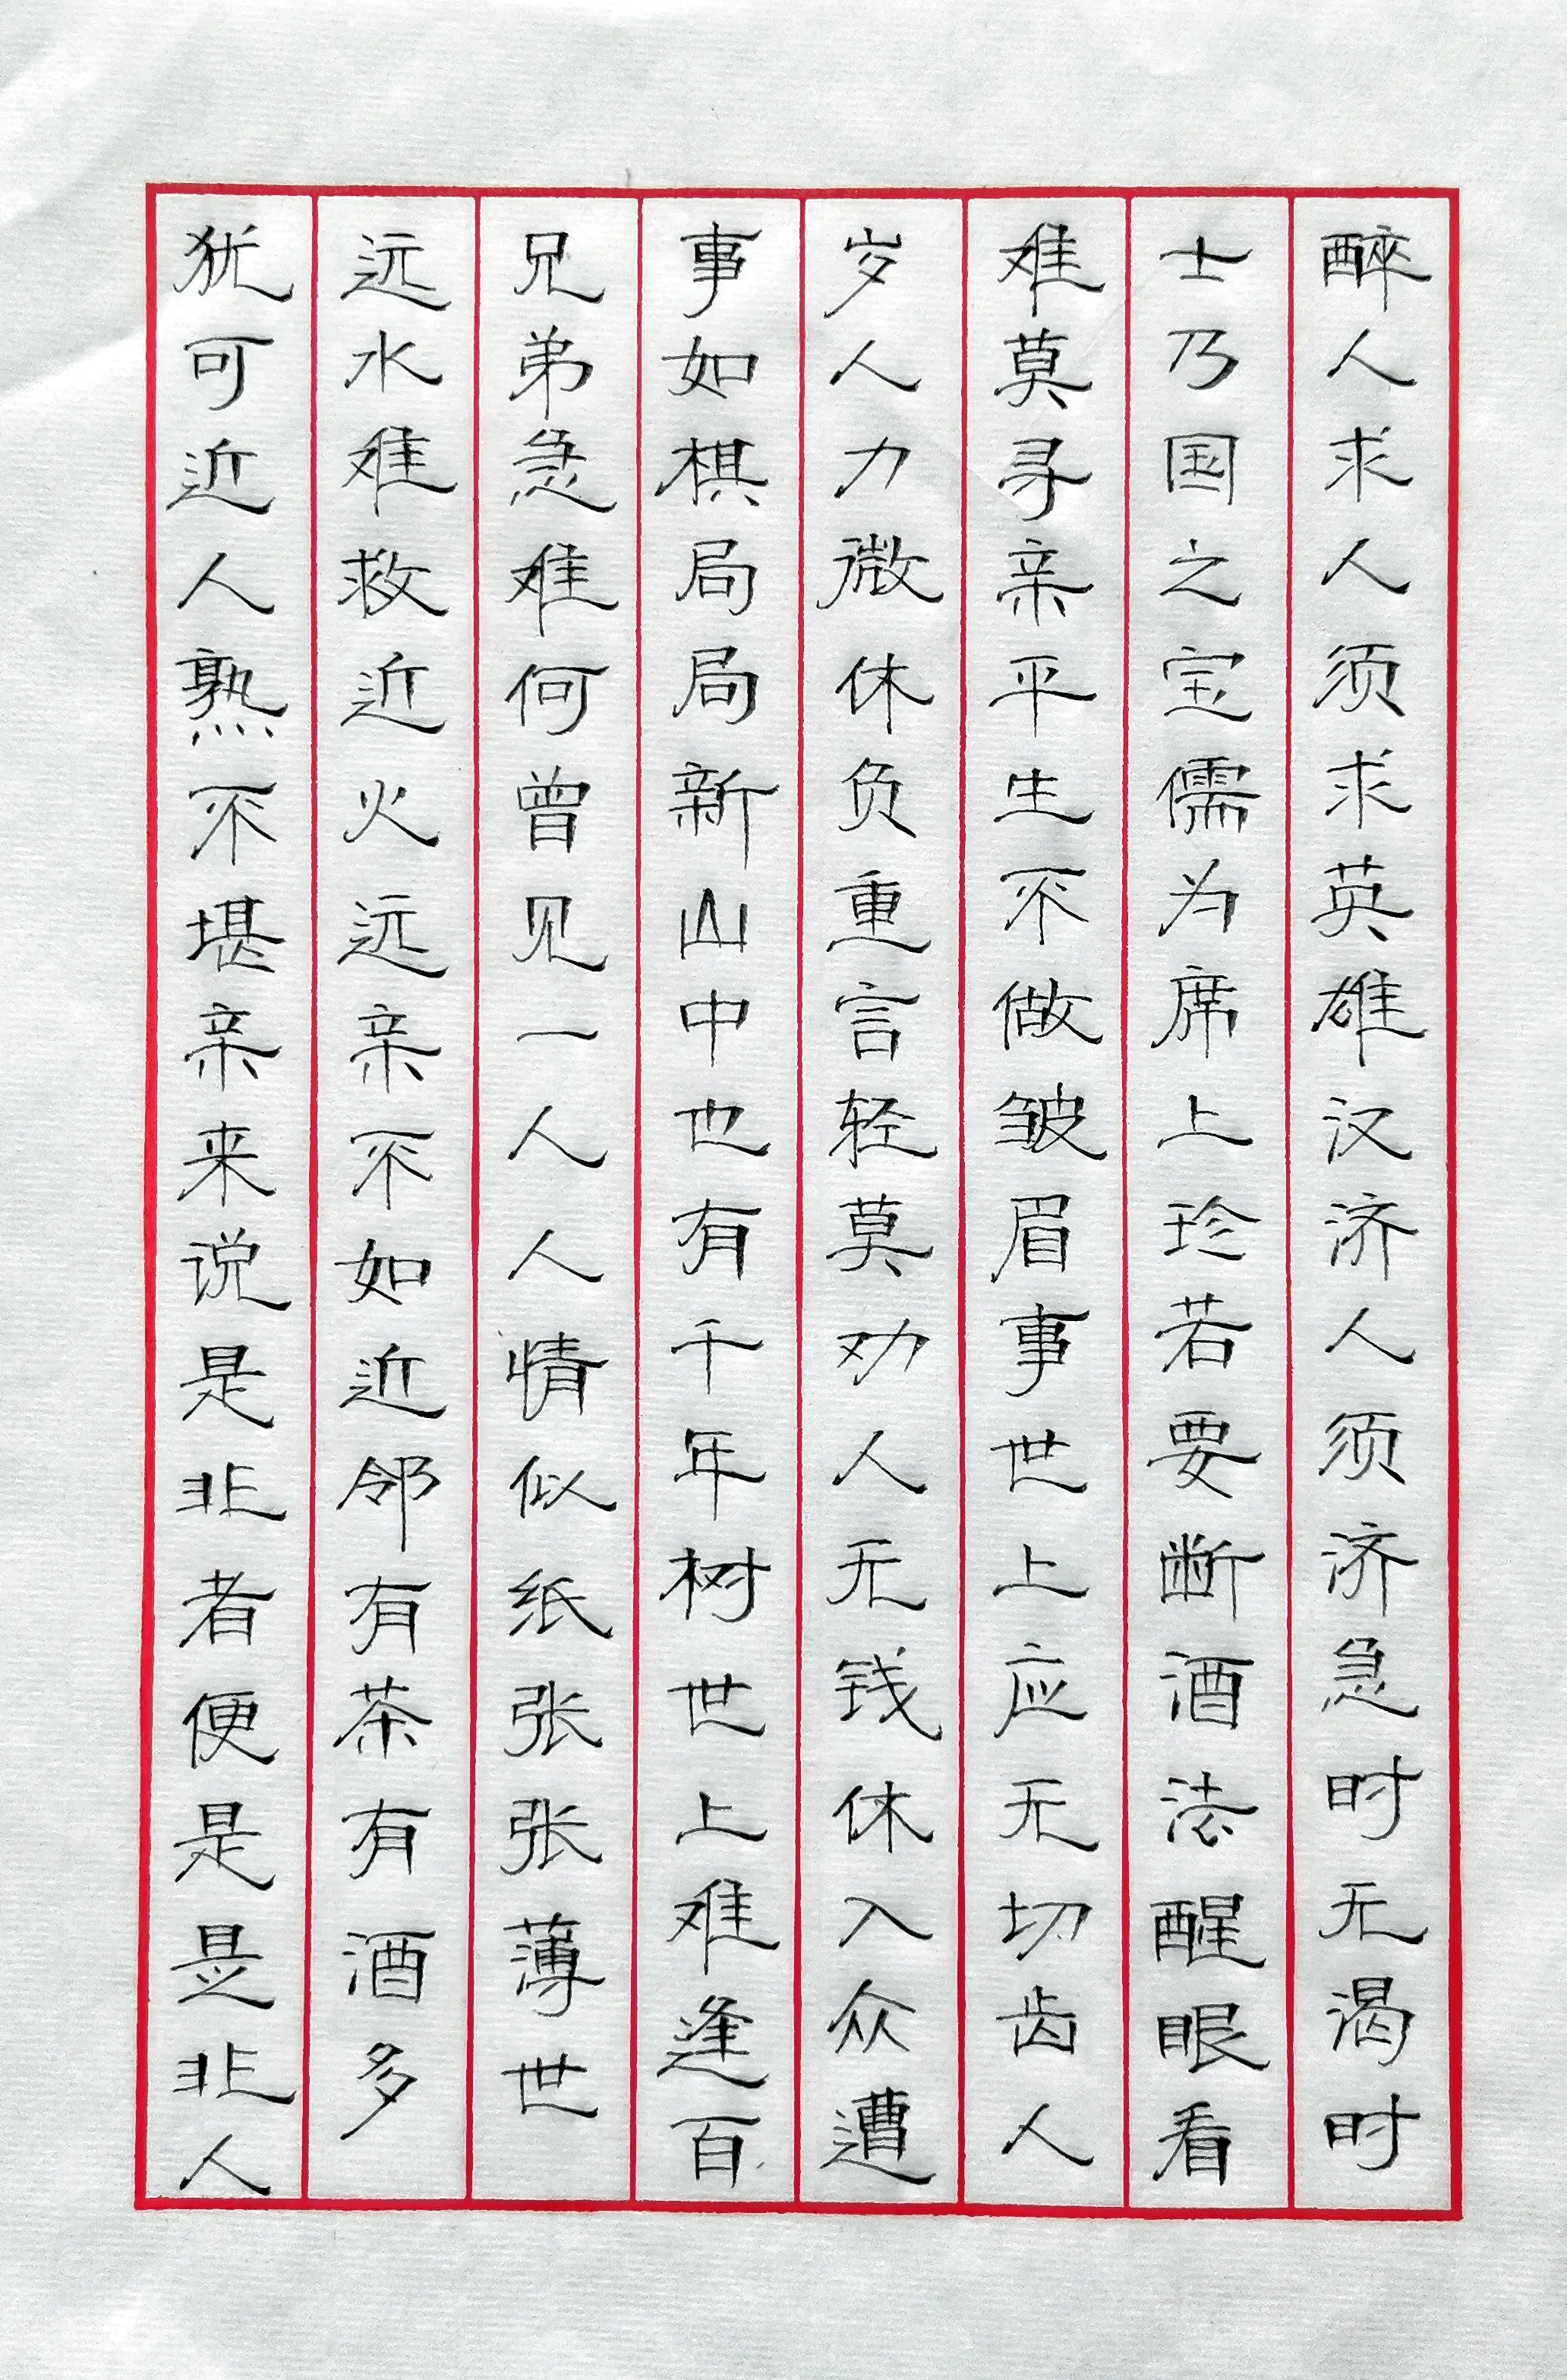 犹可近人熟不堪亲来说是非者便是是非人
远水难救近火远亲不如近邻有茶有酒多
兄弟急难何曾见一人人情似纸张张薄世
事如棋局局新山中也有千年树世上难逢百
岁人力微休负重言轻莫劝人无钱休入众遭
难莫寻亲平生不做皱眉事世上应无切齿人
士乃国之宝儒为席上珍若要断酒法醒眼看
醉人求人须求英雄汉济人须济急时无渴时